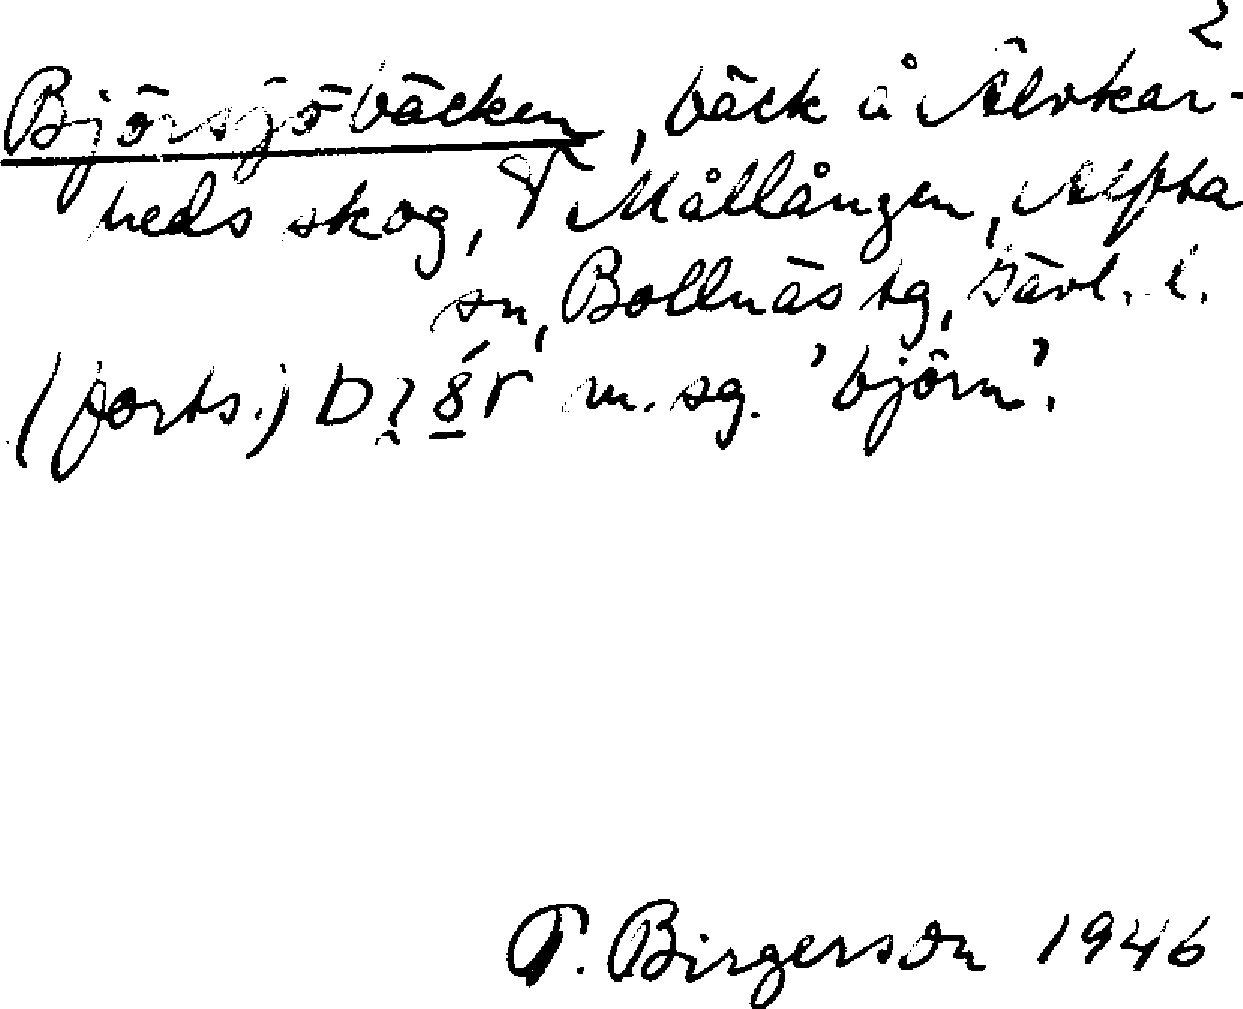 2
Björsjöbäcken, bäck å Älvkar-
heds skog, T Mållången, Alfta
sn, Bollnäs tg, Gävl. l.
(forts.) m. sg. 'björn'.
T. Birgerson 1946